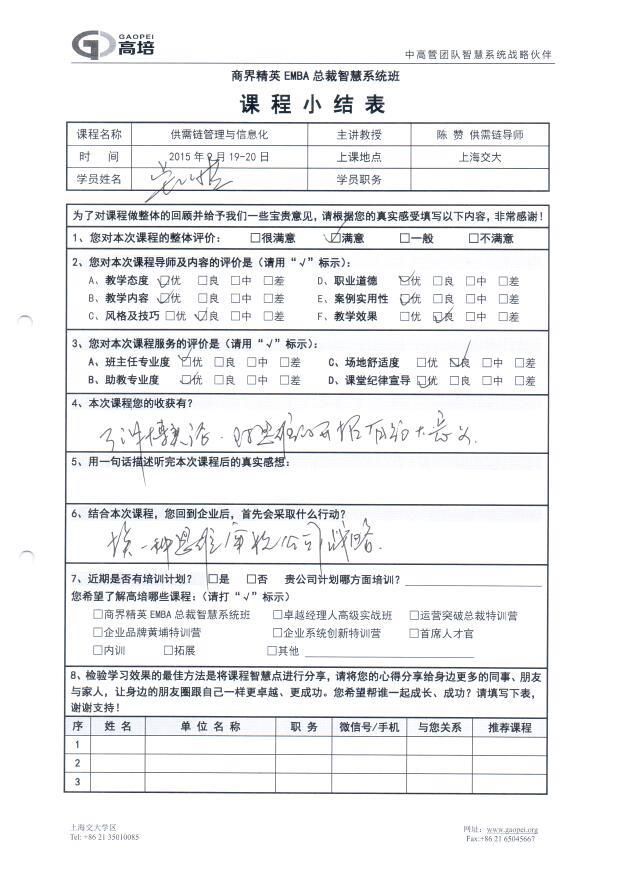 GAOPEI
高培
中高管团队智慧系统战略伙伴
商界精英 EMBA 总裁智慧系统班
课 程 小 结 表
课程名称 供需链管理与信息化 主讲教授 陈 赞 供需链导师
时 间 2015年 月 19-20日 上课地点 上海交大
学员姓名 学员职务
为了对课程做整体的回顾并给予我们一些宝贵意见，请根据您的真实感受填写以下内容，非常感谢！
1、您对本次课程的整体评价： □很满意 ☑满意 □一般 □不满意
2、您对本次课程导师及内容的评价是（请用“√”标示）：
A、教学态度 ☑优 □良 □中 □差 D、职业道德 ☑优 □良 □中 □差
B、教学内容 ☑优 □良 □中 □差 E、案例实用性 ☑优 □良 □中 □差
C、风格及技巧 □优 ☑良 □中 □差 F、教学效果 □优 ☑良 □中 □差
3、您对本次课程服务的评价是（请用“√”标示）：
A、班主任专业度 ☑优 □良 □中 □差 C、场地舒适度 □优 ☑良 □中 □差
B、助教专业度 ☑优 □良 □中 □差 D、课堂纪律宣导 ☑优 □良 □中 □差
4、本次课程您的收获有？
5、用一句话描述听完本次课程后的真实感想：
6、结合本次课程，您回到企业后，首先会采取什么行动？
换一种思维 公司战略。
7、近期是否有培训计划？ □是 □否 贵公司计划哪方面培训？
您希望了解高培哪些课程：（请打“√”标示）
□商界精英EMBA总裁智慧系统班 □卓越经理人高级实战班 □运营突破总裁特训营
□企业品牌黄埔特训营 □企业系统创新特训营 □首席人才官
□内训 □拓展 □其他
8、检验学习效果的最佳方法是将课程智慧点进行分享，请将您的心得分享给身边更多的同事、朋友
与家人，让身边的朋友圈跟自己一样更卓越、更成功。您希望帮谁一起成长、成功？请填写下表，
谢谢支持！
序 姓 名 单 位 名 称 职 务 微信号/手机 与您关系 推荐课程
1
2
3
上海交大学区 网址：www.gaopei.org
Tel: +86 21 35010085 Fax:+86 21 65045667